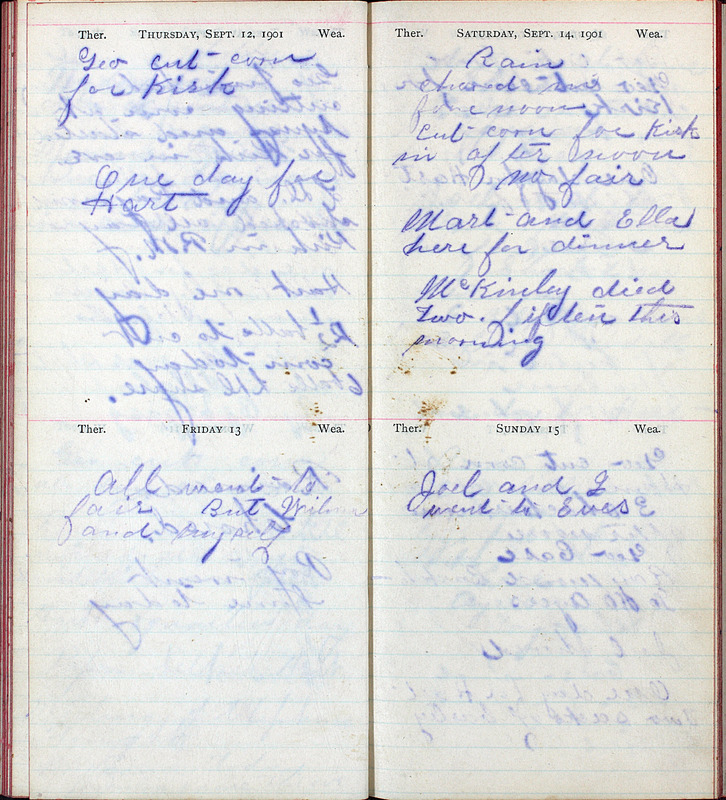 Ther. Thursday, Sept. 12, 1901 Wea.
Geo cut corn
for Kirk
One day for
Hart
Ther. Friday 13 Wea.
All went to
fair But Wilma
and myself
Ther. Saturday, Sept. 14, 1901 Wea.
Rain
in
fore noon
Cut corn for Kirk
in after noon
no fair
Mart and Ella
here for dinner
McKinley died
Two. fiften this
morning
Ther. Sunday 15 Wea.
Joel and I
went to Eves